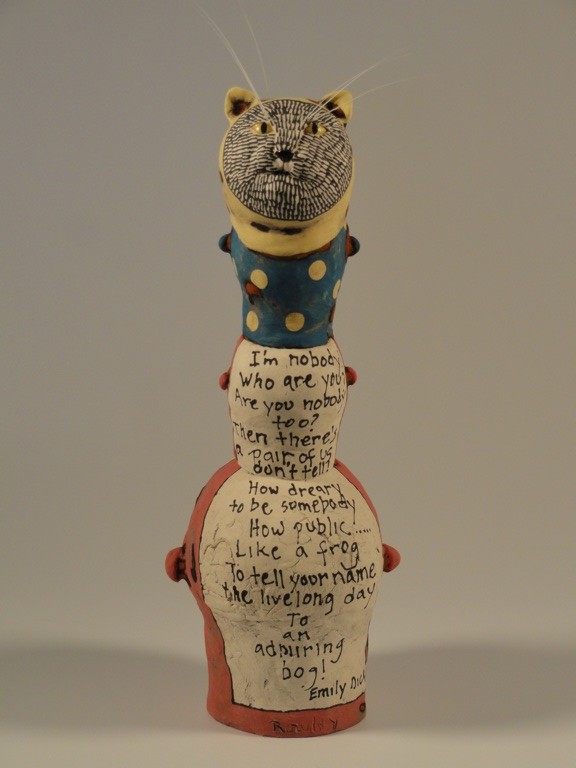 I'm nobody
Who are you?
Are you nobody
too?
Then there's
a pair of us
don't tell!
How dreary
to be somebody
How public.....
Like a frog
To tell your name
the livelong day
To
an
admiring
bog!
Emily Dick